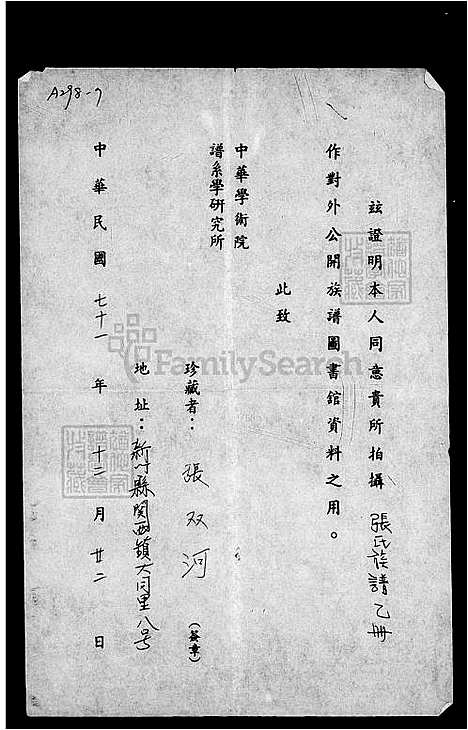 A298-7
茲證明本人同意貴所拍攝 張氏族譜 乙冊
作對外公開族譜圖書館資料之用。
此致
中華學術院
譜系學研究所
珍藏者： 張双河 (簽章)
地址：新竹縣関西鎮大同里八号
中華民國 七十一 年 十二 月 廿二 日
FamilySearch